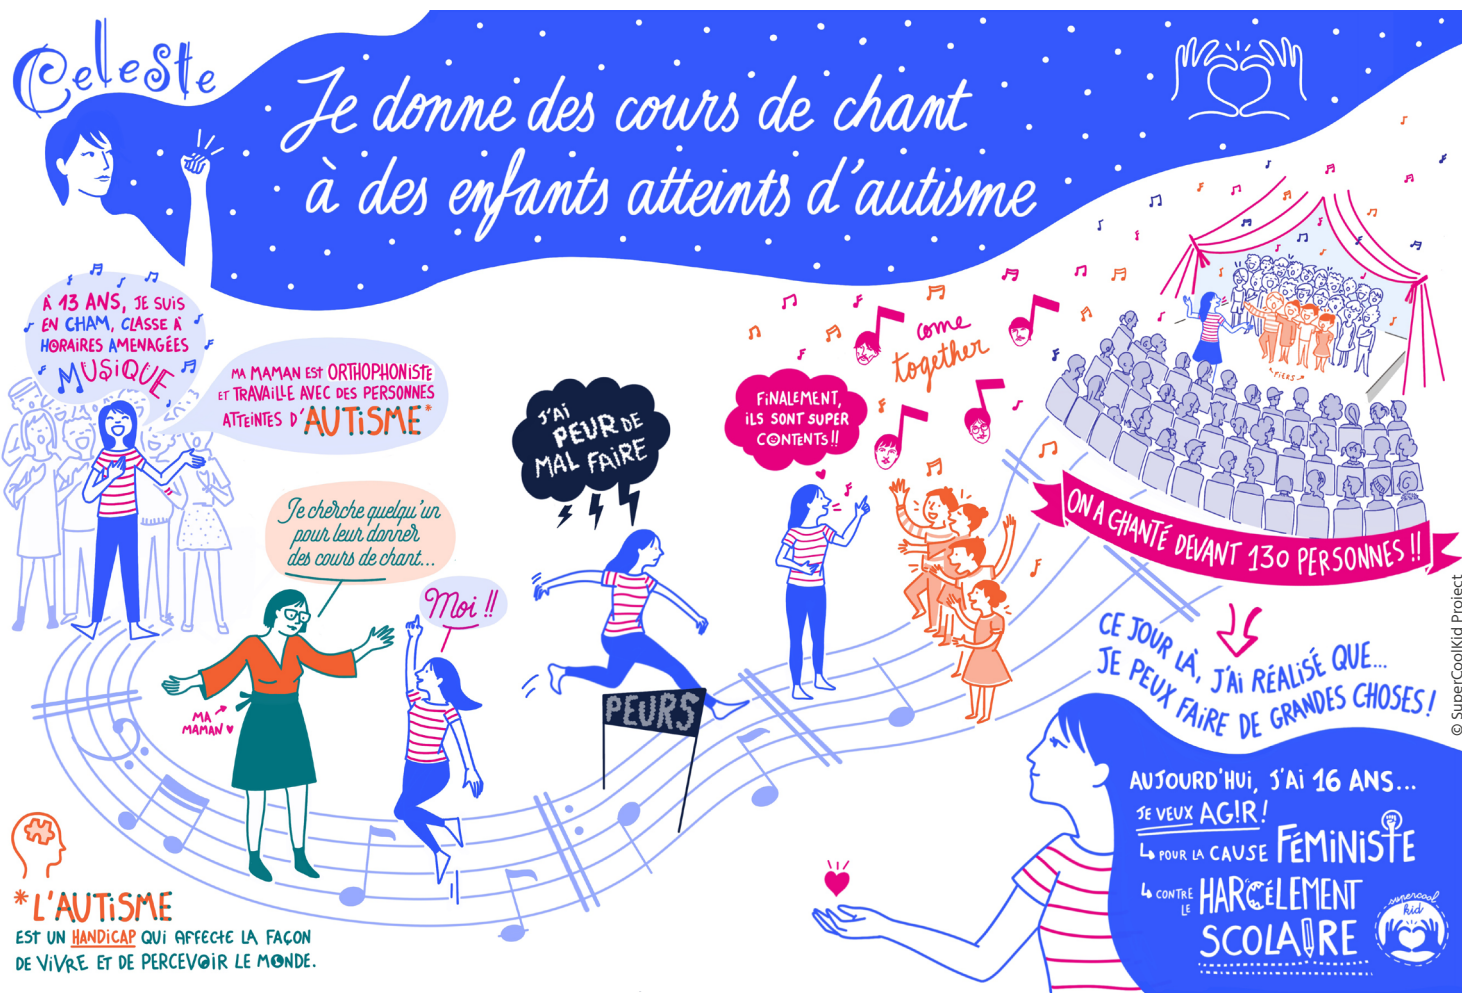 Celeste
Je donne des cours de chant
à des enfants atteints d'autisme
À 13 ANS, JE SUIS
EN CHAM, CLASSE À
HORAIRES AMENAGÉES
MUSIQUE
MA MAMAN EST ORTHOPHONISTE
ET TRAVAILLE AVEC DES PERSONNES
ATTEINTES D'AUTISME*
Je cherche quelqu'un
pour leur donner
des cours de chant...
MA
MAMAN ♥
Moi !!
J'AI
PEUR DE
MAL FAIRE
PEURS
FINALEMENT,
ILS SONT SUPER
CONTENTS!!
come
together
FIERS
ON A CHANTÉ DEVANT 130 PERSONNES !!
CE JOUR LÀ, J'AI RÉALISÉ QUE...
JE PEUX FAIRE DE GRANDES CHOSES!
AUJOURD'HUI, J'AI 16 ANS...
JE VEUX AGIR!
POUR LA CAUSE FÉMINISTE
CONTRE
LE HARCÉLEMENT
SCOLAIRE
supercool
kid
*L'AUTISME
EST UN HANDICAP QUI AFFECTE LA FAÇON
DE VIVRE ET DE PERCEVOIR LE MONDE.
© SuperCoolKid Project